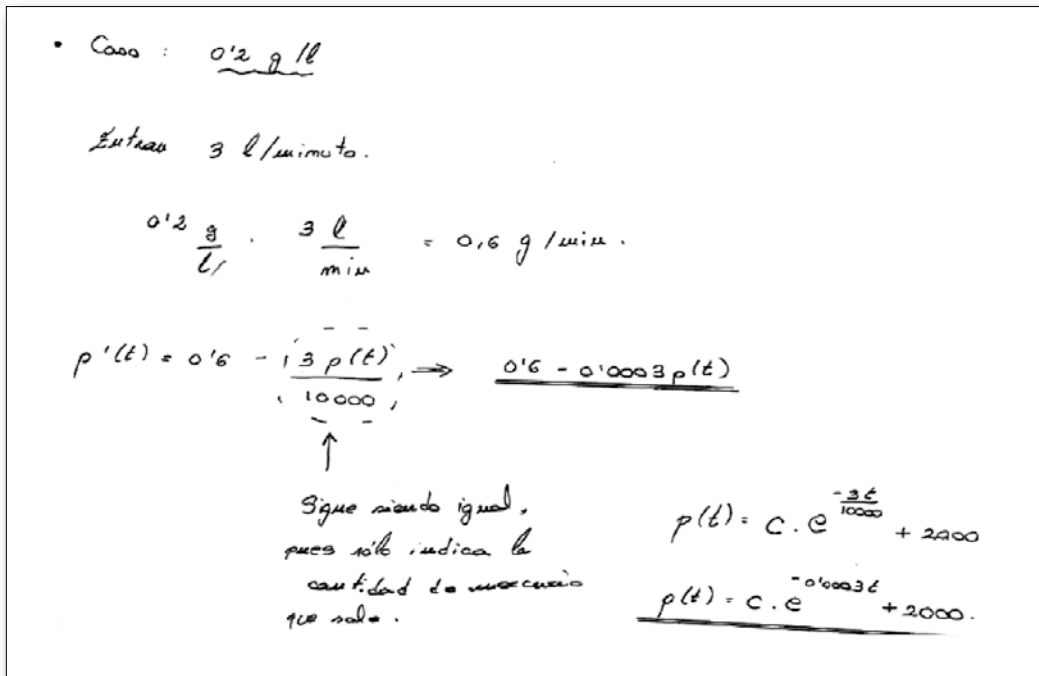 • Caso : 0'2 g/l
Entran 3 l/minuto.
0'2 g/l · 3 l/min = 0,6 g/min.
p'(t) = 0'6 - 3 p(t)/10000 ⇒ 0'6 - 0'0003 p(t)
↑
Sigue siendo igual,
pues sólo indica la
cantidad de mercurio
que sale.
p(t) = C . e^(-3t/10000) + 2000
p(t) = C . e^(-0'0003t) + 2000.